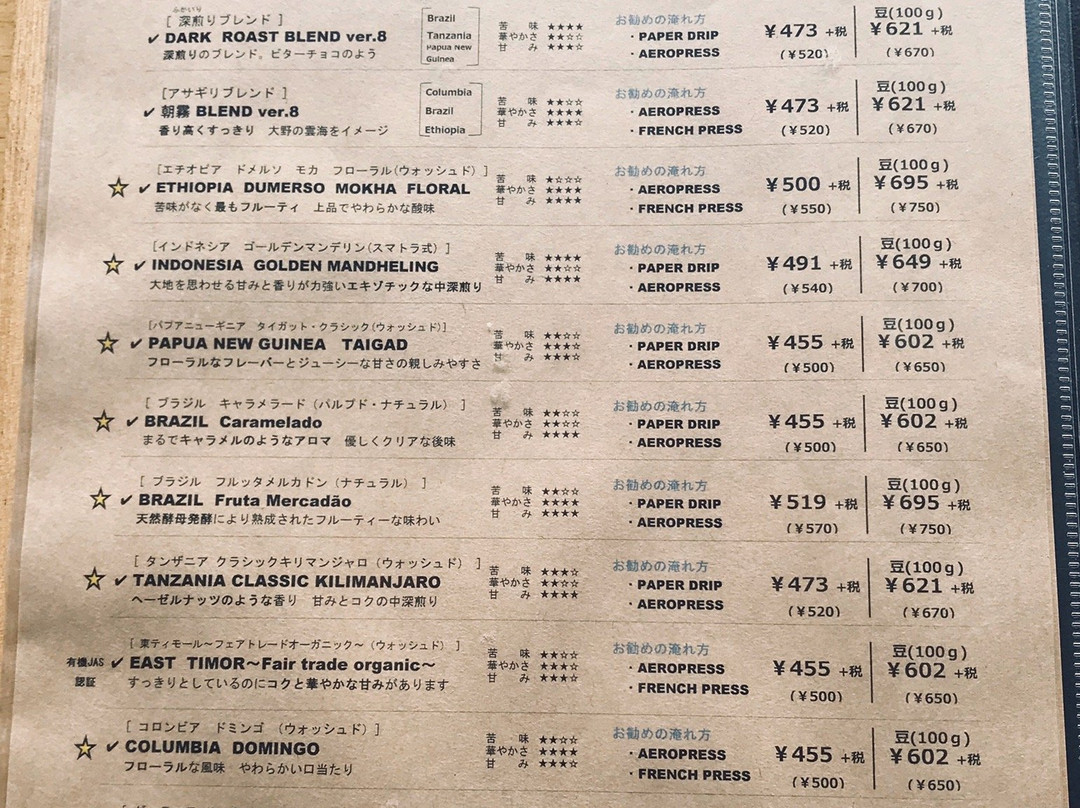 ふかいり
[ 深煎りブレンド ]
✓ DARK ROAST BLEND ver.8
深煎りのブレンド。ビターチョコのよう
Brazil
Tanzania
Papua New
Guinea
苦 味 ★★★★
華やかさ ★★☆☆
甘 み ★★★☆
お勧めの淹れ方
・PAPER DRIP
・AEROPRESS
¥473 +税
(¥520)
豆(100g)
¥621 +税
(¥670)
[アサギリブレンド ]
✓ 朝霧 BLEND ver.8
香り高くすっきり 大野の雲海をイメージ
Columbia
Brazil
Ethiopia
苦 味 ★★☆☆
華やかさ ★★★★
甘 み ★★★☆
お勧めの淹れ方
・AEROPRESS
・FRENCH PRESS
¥473 +税
(¥520)
豆(100g)
¥621 +税
(¥670)
[エチオピア ドメルソ モカ フローラル(ウォッシュド) ]
☆ ✓ ETHIOPIA DUMERSO MOKHA FLORAL
苦味がなく最もフルーティ 上品でやわらかな酸味
苦 味 ★☆☆☆
華やかさ ★★★★
甘 み ★★★★
お勧めの淹れ方
・AEROPRESS
・FRENCH PRESS
¥500 +税
(¥550)
豆(100g)
¥695 +税
(¥750)
[インドネシア ゴールデンマンデリン(スマトラ式) ]
☆ ✓ INDONESIA GOLDEN MANDHELING
大地を思わせる甘みと香りが力強いエキゾチックな中深煎り
苦 味 ★★★★
華やかさ ★★☆☆
甘 み ★★★★
お勧めの淹れ方
・PAPER DRIP
・AEROPRESS
¥491 +税
(¥540)
豆(100g)
¥649 +税
(¥700)
[パプアニューギニア タイガット・クラシック(ウォッシュド)]
☆ ✓ PAPUA NEW GUINEA TAIGAD
フローラルなフレーバーとジューシーな甘さの親しみやすさ
苦 味 ★★☆☆
華やかさ ★★★☆
甘 み ★★★☆
お勧めの淹れ方
・PAPER DRIP
・AEROPRESS
¥455 +税
(¥500)
豆(100g)
¥602 +税
(¥650)
[ ブラジル キャラメラード (パルプド・ナチュラル) ]
☆ ✓ BRAZIL Caramelado
まるでキャラメルのようなアロマ 優しくクリアな後味
苦 味 ★★☆☆
華やかさ ★★☆☆
甘 み ★★★★
お勧めの淹れ方
・PAPER DRIP
・AEROPRESS
¥455 +税
(¥500)
豆(100g)
¥602 +税
(¥650)
[ ブラジル フルッタメルカドン (ナチュラル) ]
☆ ✓ BRAZIL Fruta Mercadão
天然酵母発酵により熟成されたフルーティーな味わい
苦 味 ★★☆☆
華やかさ ★★★★
甘 み ★★★★
お勧めの淹れ方
・PAPER DRIP
・AEROPRESS
¥519 +税
(¥570)
豆(100g)
¥695 +税
(¥750)
[ タンザニア クラシックキリマンジャロ (ウォッシュド) ]
☆ ✓ TANZANIA CLASSIC KILIMANJARO
ヘーゼルナッツのような香り 甘みとコクの中深煎り
苦 味 ★★★☆
華やかさ ★★☆☆
甘 み ★★★★
お勧めの淹れ方
・PAPER DRIP
・AEROPRESS
¥473 +税
(¥520)
豆(100g)
¥621 +税
(¥670)
[ 東ティモール～フェアトレードオーガニック～ (ウォッシュド) ]
有機JAS
認証
✓ EAST TIMOR～Fair trade organic～
すっきりとしているのにコクと華やかな甘みがあります
苦 味 ★★☆☆
華やかさ ★★★☆
甘 み ★★★☆
お勧めの淹れ方
・AEROPRESS
・FRENCH PRESS
¥455 +税
(¥500)
豆(100g)
¥602 +税
(¥650)
[ コロンビア ドミンゴ (ウォッシュド) ]
☆ ✓ COLUMBIA DOMINGO
フローラルな風味 やわらかい口当たり
苦 味 ★★☆☆
華やかさ ★★★★
甘 み ★★★☆
お勧めの淹れ方
・AEROPRESS
・FRENCH PRESS
¥455 +税
(¥500)
豆(100g)
¥602 +税
(¥650)